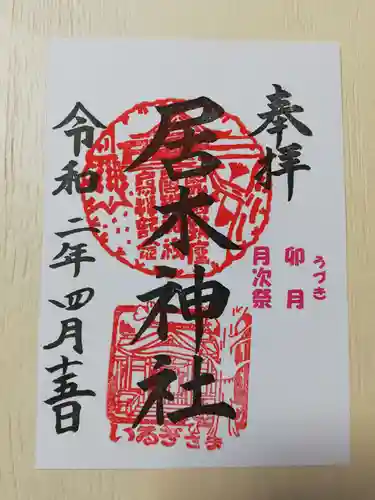 奉拝
うづき
卯月
月次祭
居木神社
令和二年四月十五日
いるぎさま